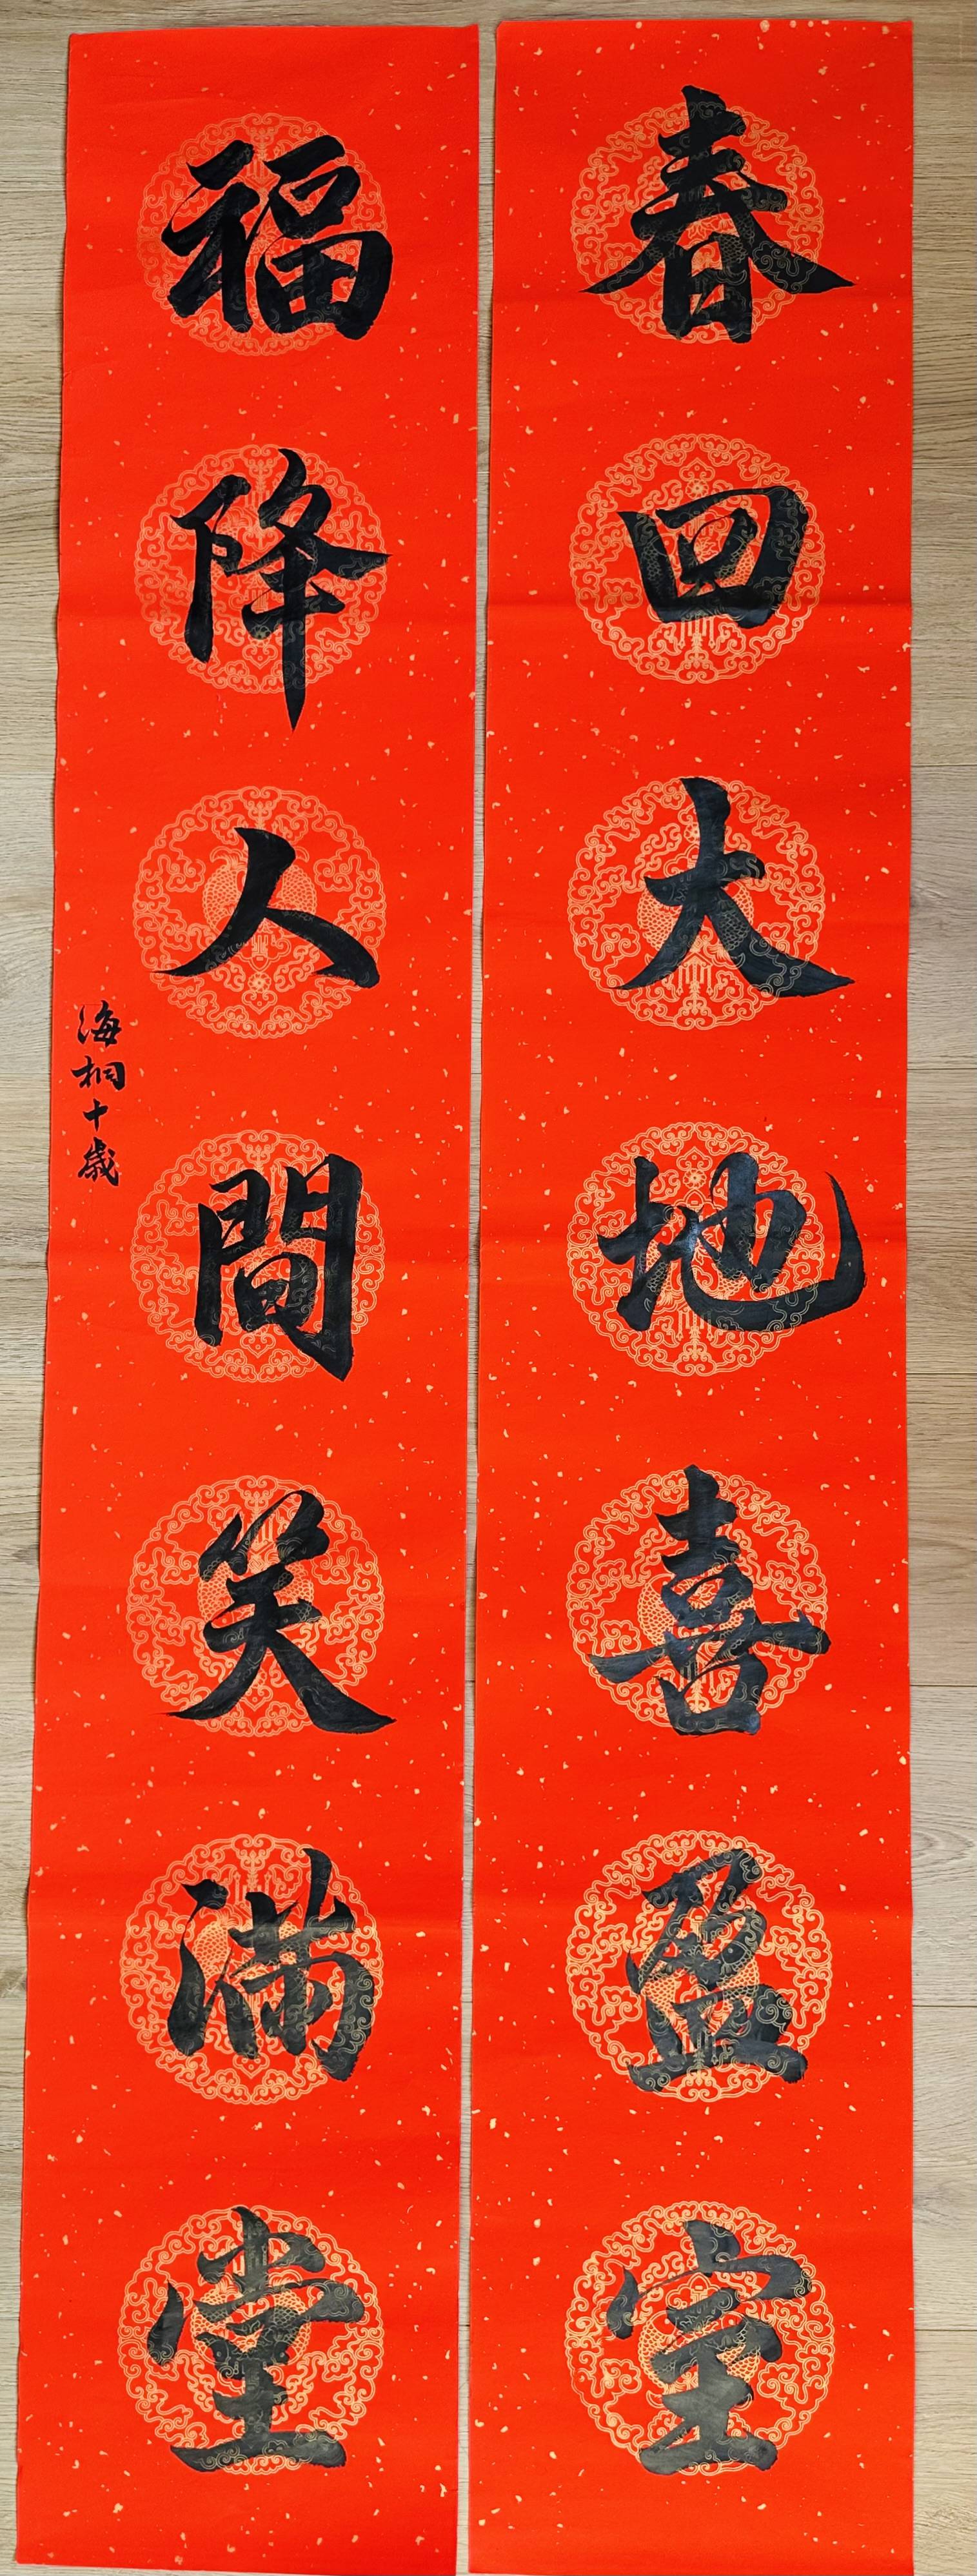 春回大地喜盈室
福降人間笑满堂
海桐十歲